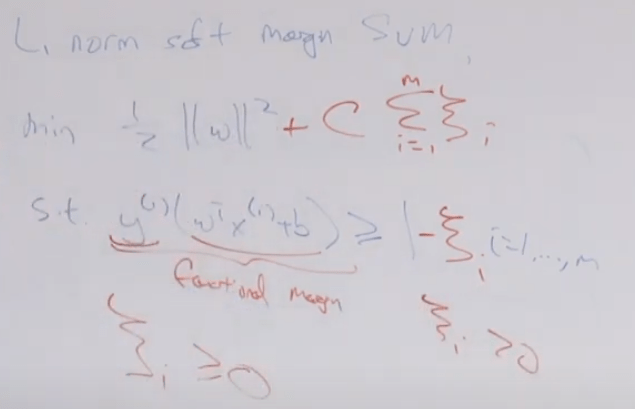 L₁ norm soft margin SVM
min ½ ||w||² + C Σᵢ₌₁ᵐ ξᵢ
s.t. y⁽ⁱ⁾(wᵀx⁽ⁱ⁾+b) ≥ 1-ξᵢ i=1,...,m
functional margin
ξᵢ ≥0 ξᵢ >0